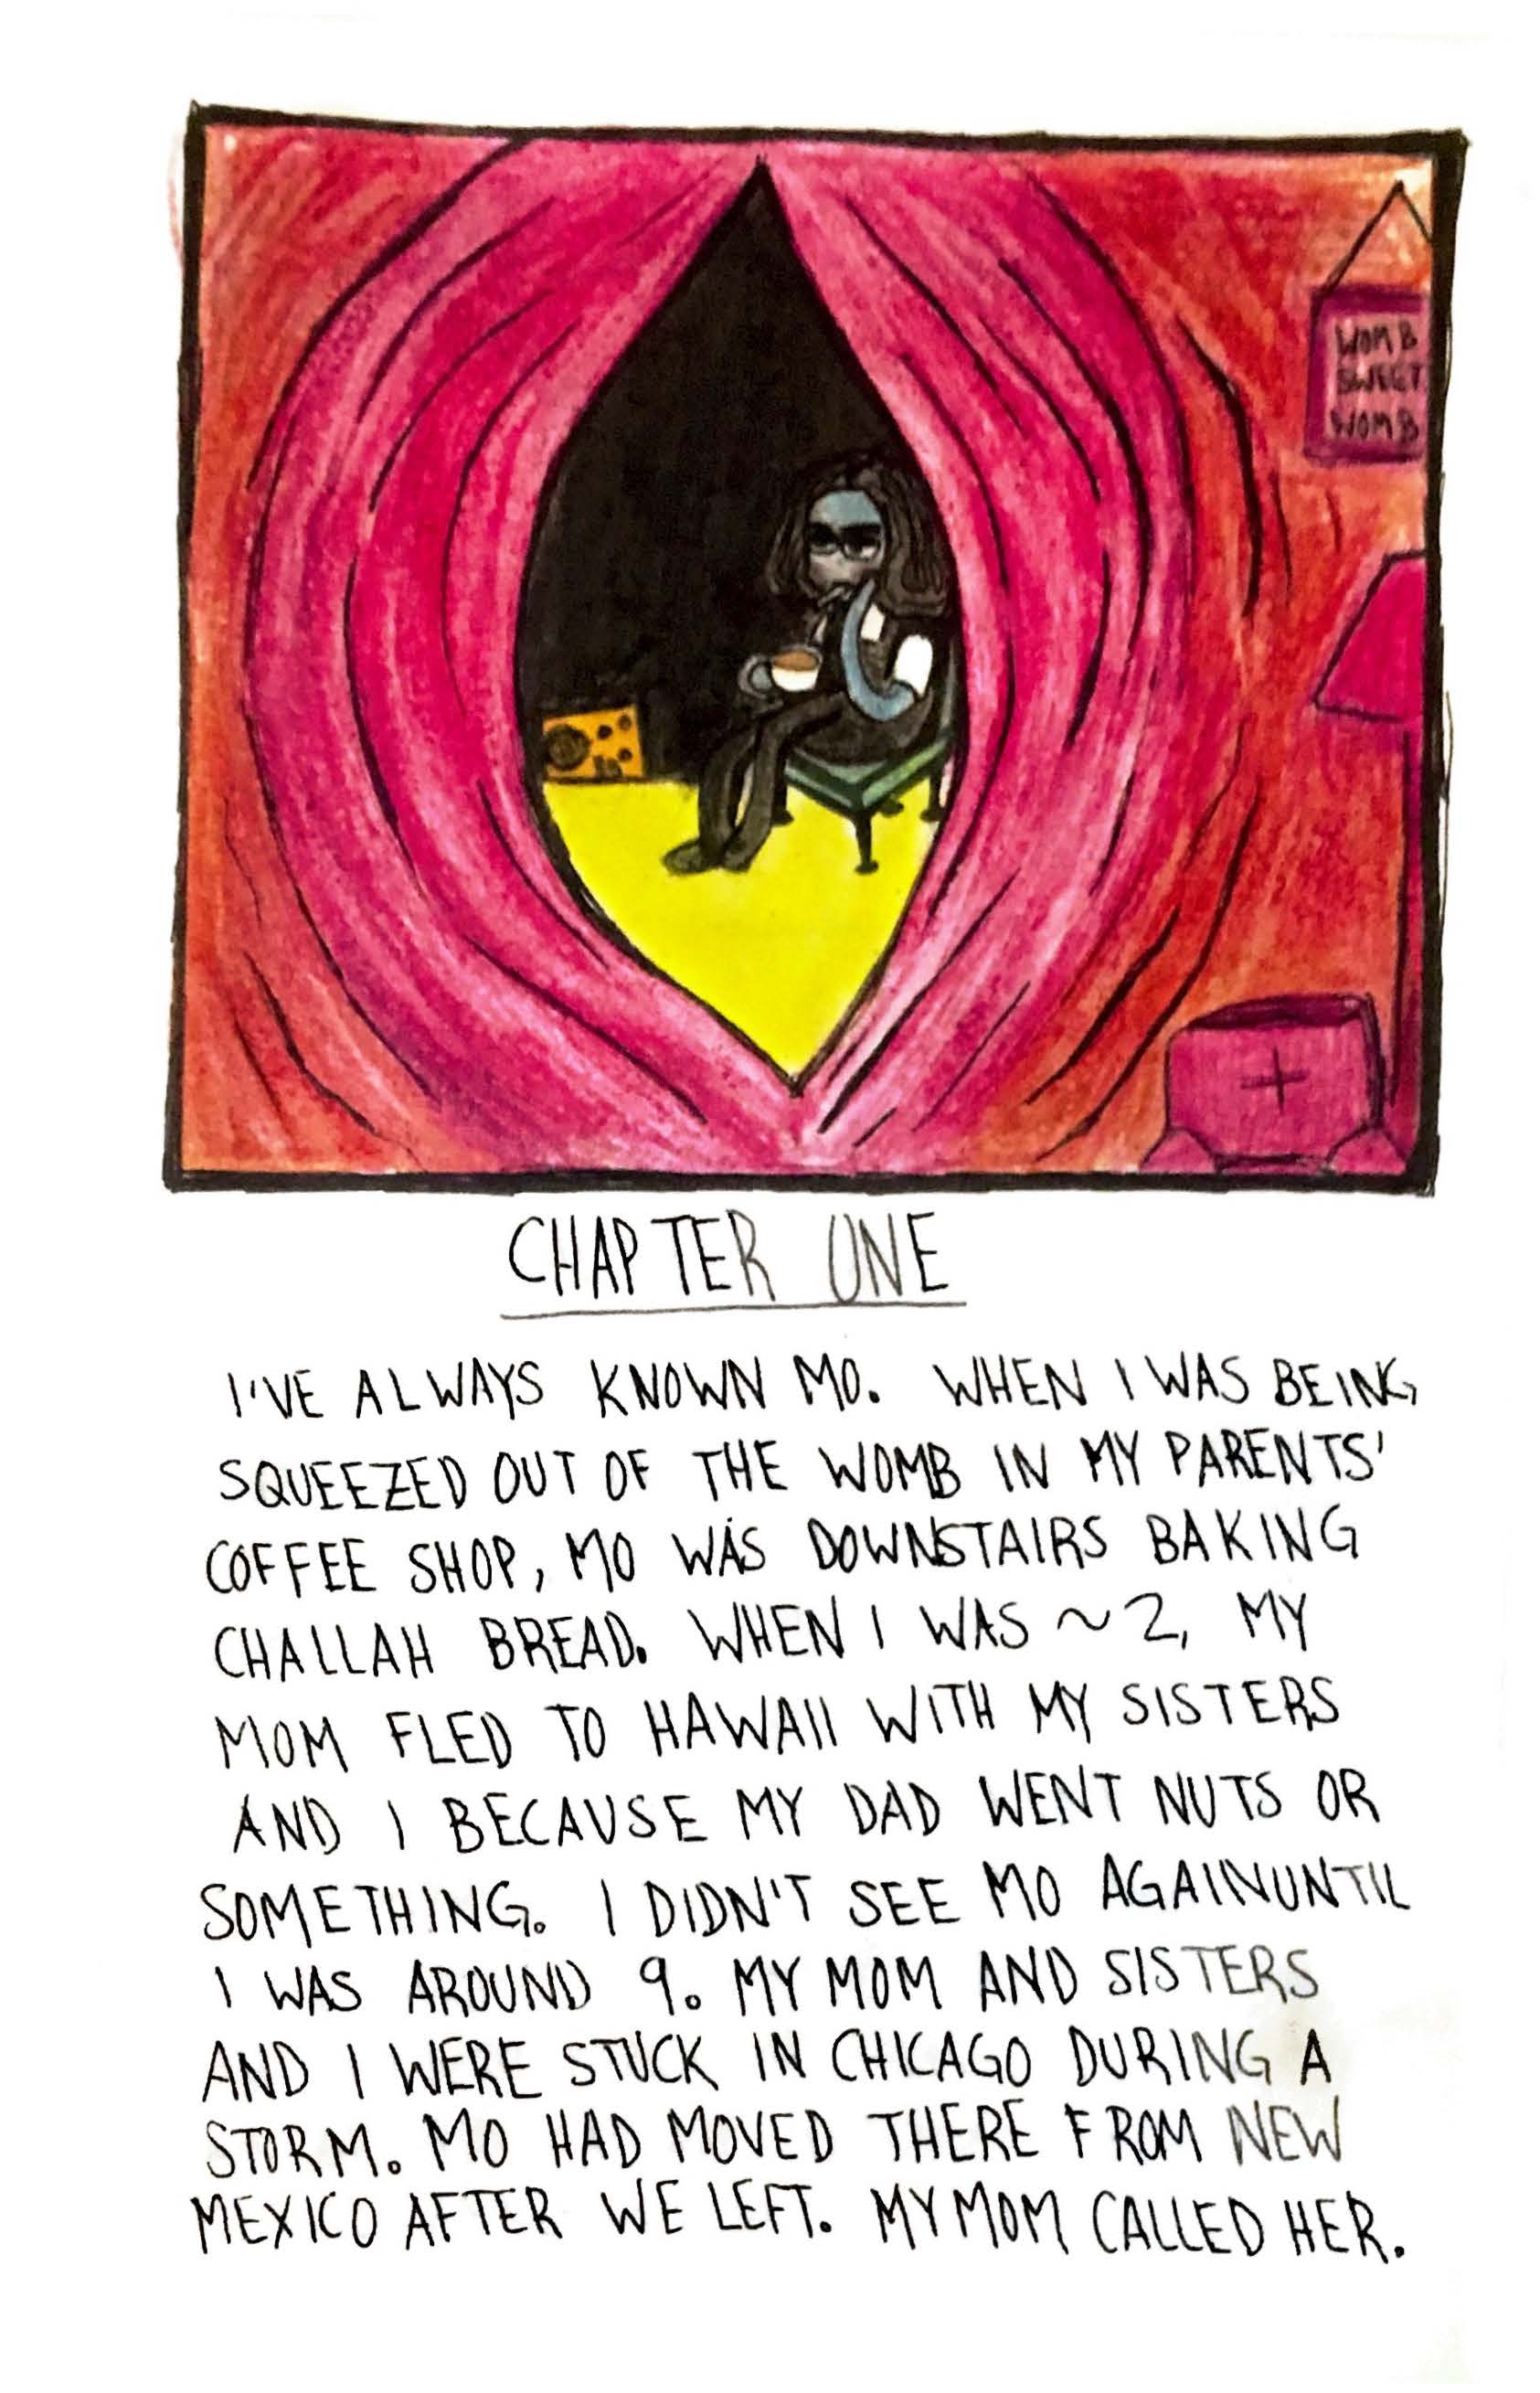 WOMB
SWEET
WOMB
CHAPTER ONE
I'VE ALWAYS KNOWN MO. WHEN I WAS BEING
SQUEEZED OUT OF THE WOMB IN MY PARENTS'
COFFEE SHOP, MO WAS DOWNSTAIRS BAKING
CHALLAH BREAD. WHEN I WAS ~2, MY
MOM FLED TO HAWAII WITH MY SISTERS
AND I BECAUSE MY DAD WENT NUTS OR
SOMETHING. I DIDN'T SEE MO AGAIN UNTIL
I WAS AROUND 9. MY MOM AND SISTERS
AND I WERE STUCK IN CHICAGO DURING A
STORM. MO HAD MOVED THERE FROM NEW
MEXICO AFTER WE LEFT. MY MOM CALLED HER.